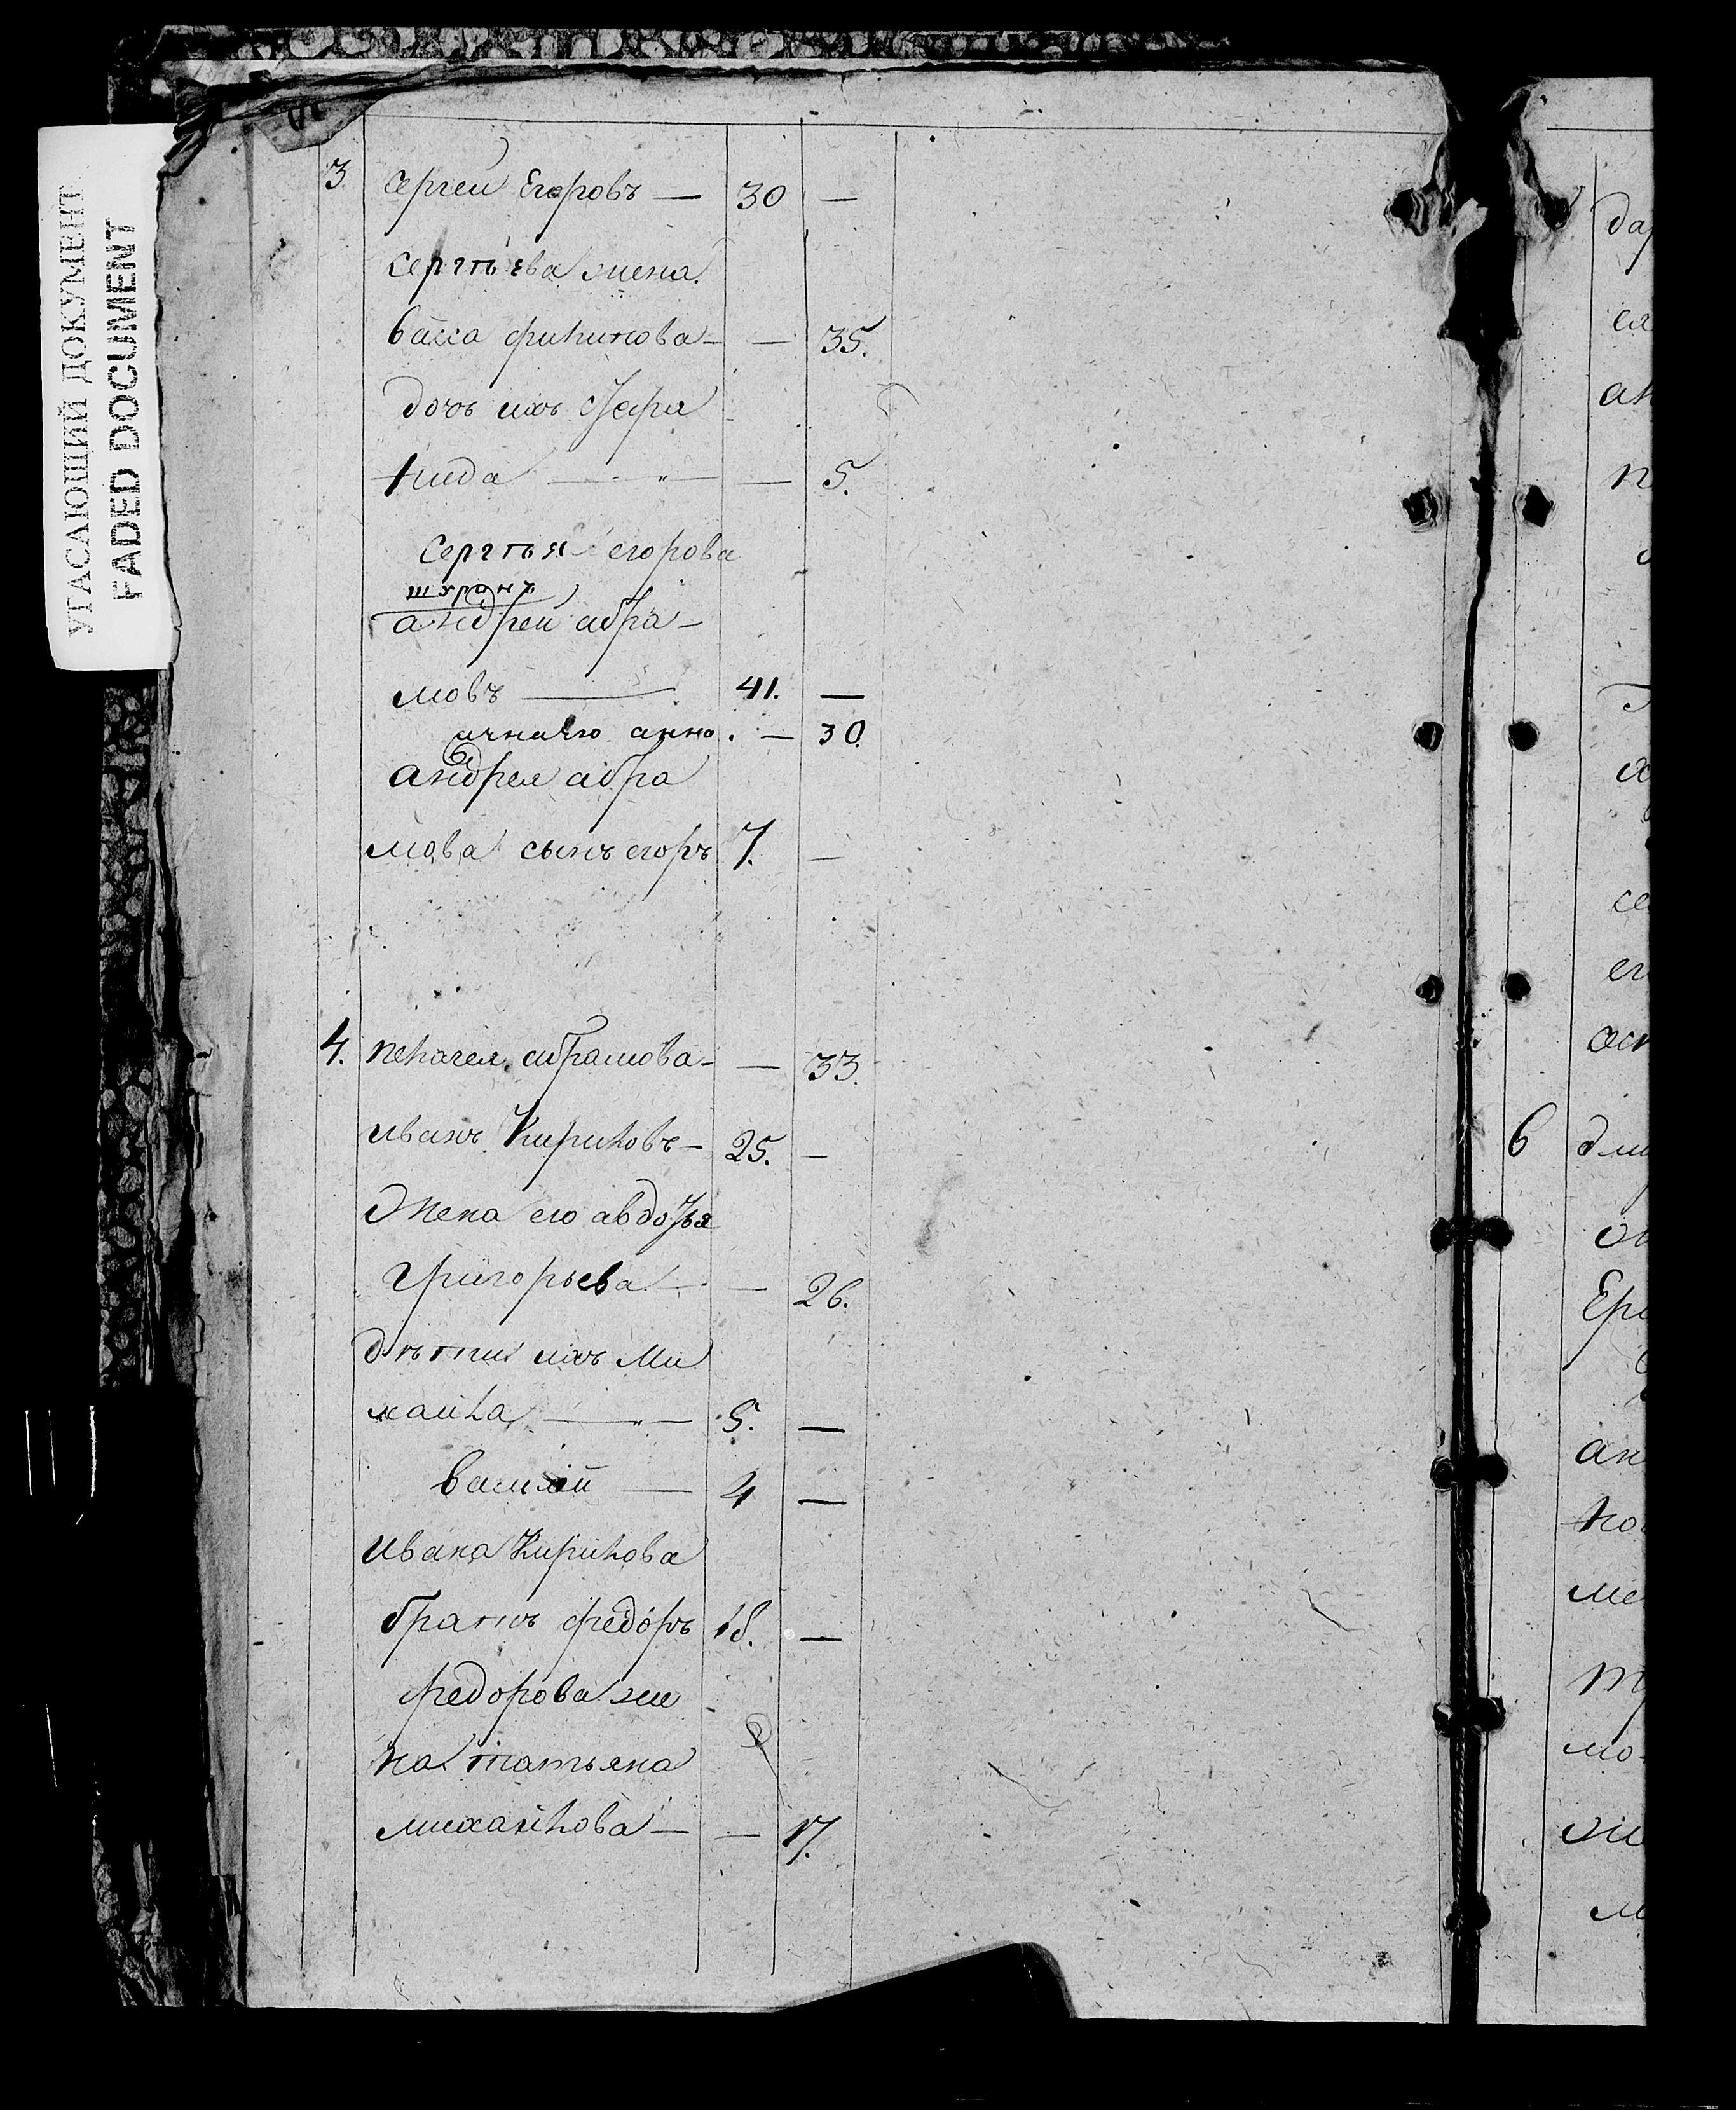 УГАСАЮЩИЙ ДОКУМЕНТ
FADED DOCUMENT
3 сергей Егоровъ — 30 —
сергѣева жена
васса филипова — — 35.
дочь ихъ Степа
нида — — 5.
сергѣя егорова
шуринъ
андрей абра-
мовъ — 41. —
анна. — 30.
андрея абра
мова сынъ егоръ 7. —
4. пелагея абрамова — — 33.
иванъ Кириловъ — 25. —
Жена его авдотья
григорьева — — 26.
дѣти ихъ Ми
хайла — 5. —
василий — 4 —
ивана Кирилова
братъ федоръ 18. —
федорова же
на татьяна
михайлова — — 17.
6